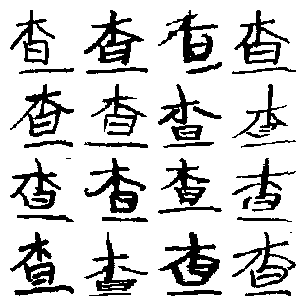 查查查查
查查查查
查查查查
查查查查